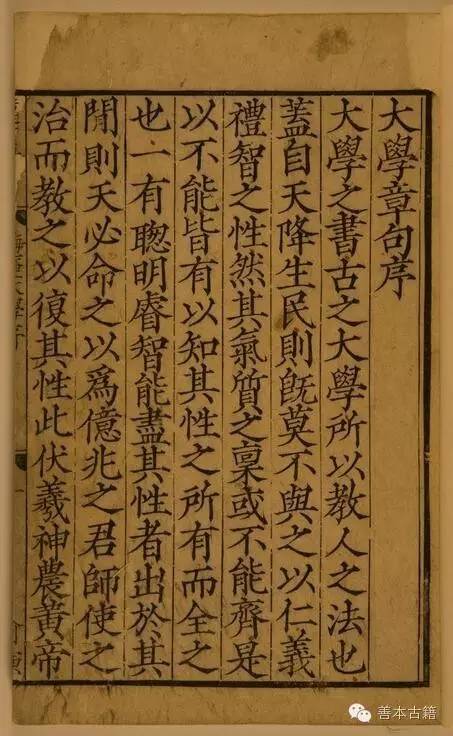 大學章句序
大學之書古之大學所以教人之法也
蓋自天降生民則既莫不與之以仁義
禮智之性然其氣質之稟或不能齊是
以不能皆有以知其性之所有而全之
也一有聰明睿智能盡其性者出於其
閒則天必命之以爲億兆之君師使之
治而教之以復其性此伏羲神農黃帝
善本古籍